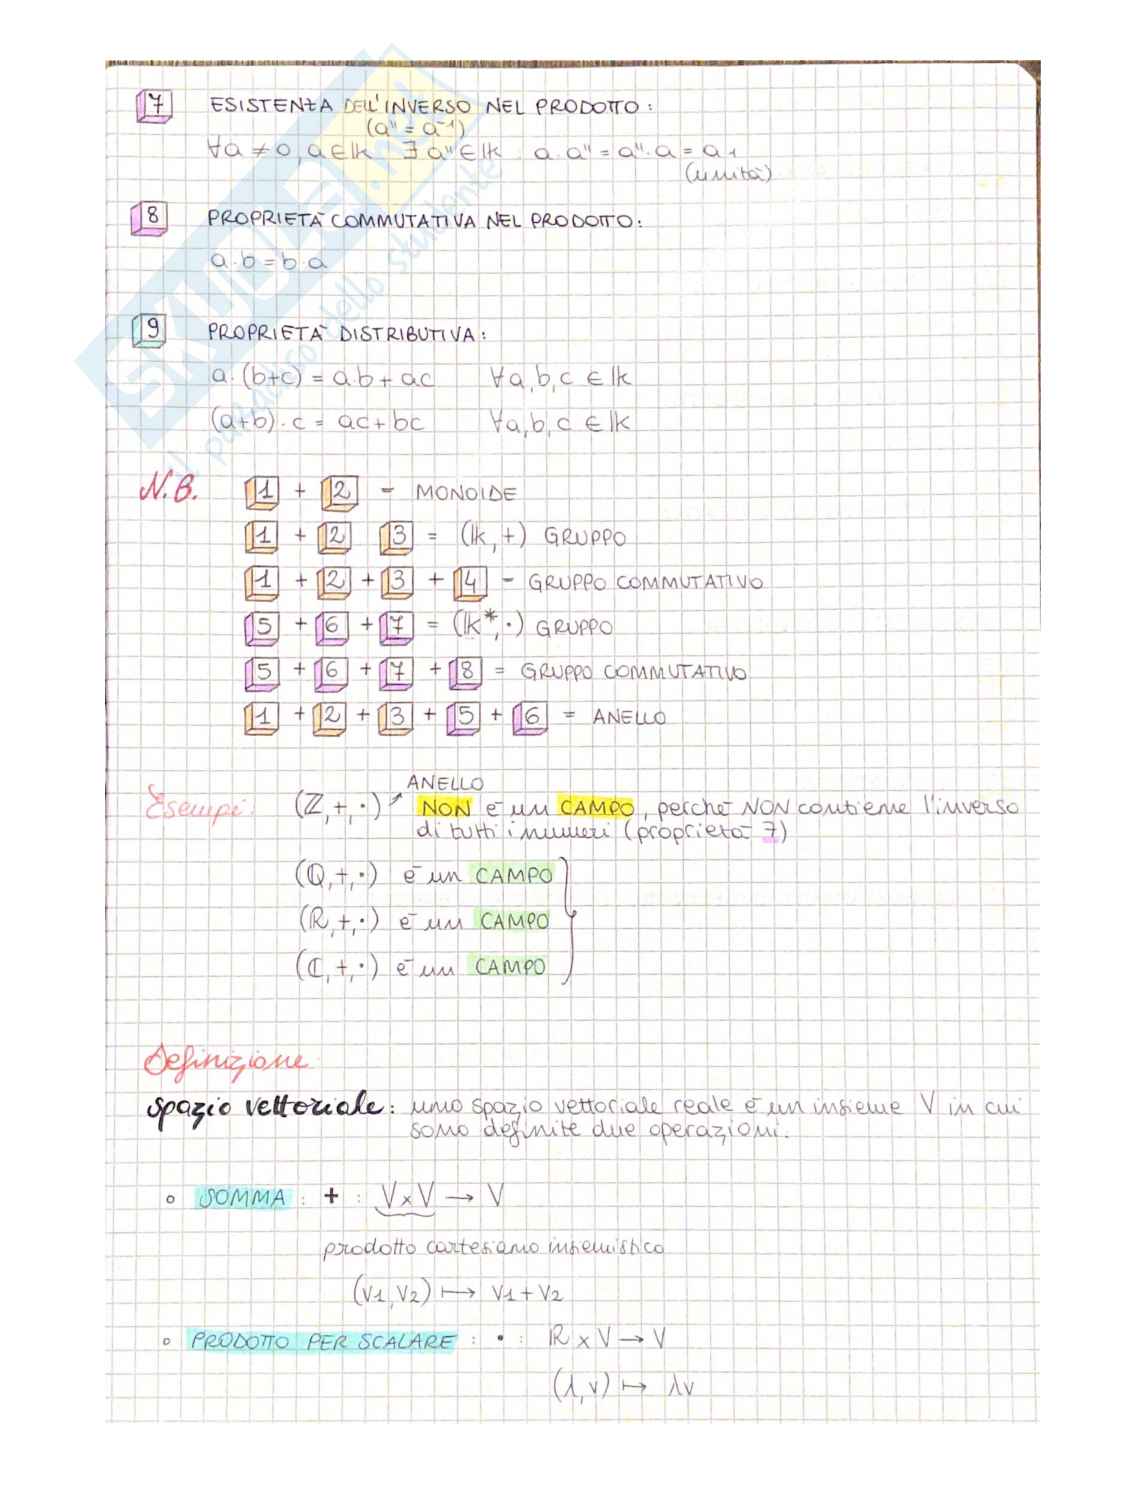 7 ESISTENZA DELL'INVERSO NEL PRODOTTO:
(a" = a⁻¹)
∀a ≠ 0, a ∈ 𝕜 ∃ a" ∈ 𝕜 a·a" = a"·a = a₁
(unità)
8 PROPRIETÀ COMMUTATIVA NEL PRODOTTO:
a·b = b·a
9 PROPRIETÀ DISTRIBUTIVA:
a·(b+c) = a·b + a·c ∀a,b,c ∈ 𝕜
(a+b)·c = ac + bc ∀a,b,c ∈ 𝕜
N.B. 1 + 2 - MONOIDE
1 + 2 3 = (𝕜,+) GRUPPO
1 + 2 + 3 + 4 - GRUPPO COMMUTATIVO
5 + 6 + 7 = (𝕜*,·) GRUPPO
5 + 6 + 7 + 8 = GRUPPO COMMUTATIVO
1 + 2 + 3 + 5 + 6 = ANELLO
ANELLO
Esempi: (ℤ,+,·) NON è un CAMPO, perché NON contiene l'inverso
di tutti i numeri (proprietà 7)
(ℚ,+,·) è un CAMPO
(ℝ,+,·) è un CAMPO
(ℂ,+,·) è un CAMPO
Definizione
spazio vettoriale: uno spazio vettoriale reale è un insieme V in cui
sono definite due operazioni.
∘ SOMMA : + : V×V → V
prodotto cartesiano insiemistico
(v1,v2) ↦ v1+v2
∘ PRODOTTO PER SCALARE : • : ℝ×V → V
(λ,v) ↦ λv
SKUOLA.net
il paradiso dello studente